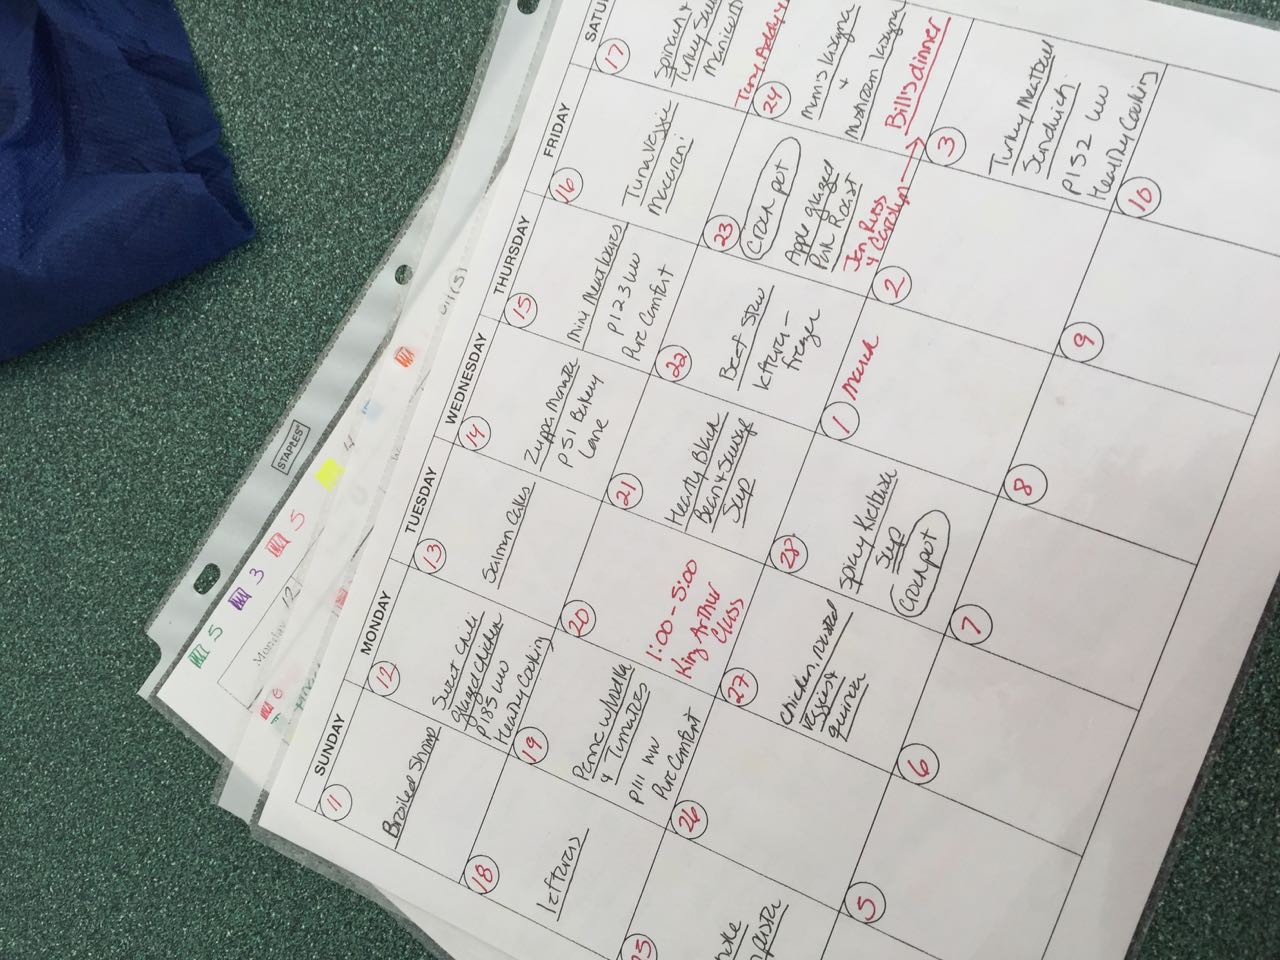 SUNDAY
MONDAY
TUESDAY
WEDNESDAY
THURSDAY
FRIDAY
SATU
11
Broiled Shrimp
12
Sweet Chili
glazed chicken
p185 WW
Healthy Cooking
13
Salmon Cakes
14
p51 Bakery
Lane
15
Mini Meatloaves
p123 WW
Pure Comfort
16
Tuna Veggie
Macaroni
17
Spinach &
Turkey
Manicotti
18
leftovers
19
Penne w/Vodka
& Tomatoes
p111 WW
Pure Comfort
20
1:00-5:00
King Arthur
Class
21
Hearty Black
Bean & Sausage
Soup
22
Beef Stew
leftover-
freezer
23
Crock pot
Apple glazed
Pork Roast
Jen, Russ
& Carolyn
24
Mom's lasagna
+
Mushroom lasagna
Bill's dinner
25
26
27
chicken, roasted
veggies &
quinoa
28
Spicy Kielbasa
Soup
Crockpot
1 March
2
3
Turkey Meatball
Sandwich
p152 WW
Healthy Cooking
5
6
7
8
9
10
STAPLES
5
3
5
4
Monday
12
6